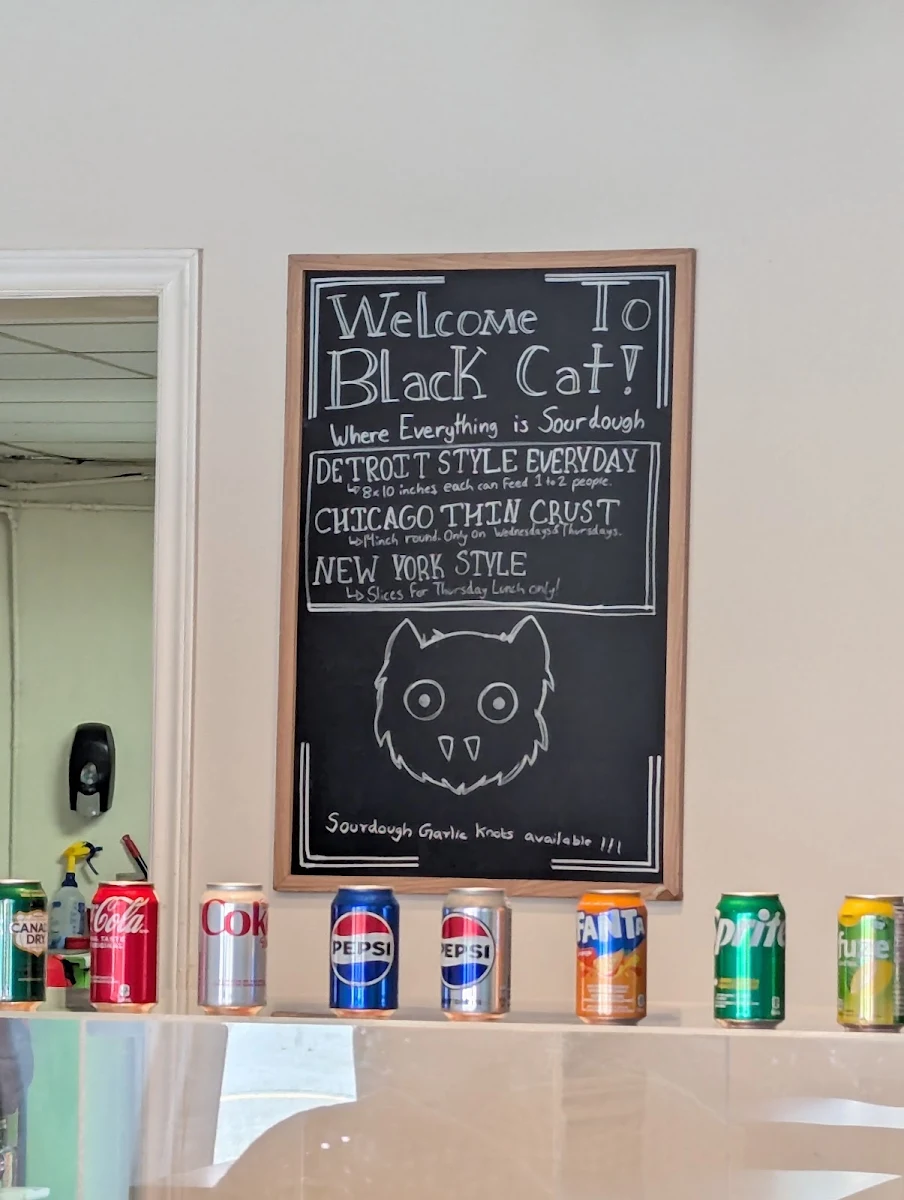 Welcome To
Black Cat!
Where Everything is Sourdough
DETROIT STYLE EVERYDAY
↳ 8x10 inches each can feed 1 to 2 people.
CHICAGO THIN CRUST
↳ 14inch round. Only on Wednesdays & Thursdays.
NEW YORK STYLE
↳ Slices for Thursday Lunch only!
Sourdough Garlic Knots available !!!
CANADA
DRY
Cola
TASTE
Cok
PEPSI
PEPSI
FANTA
Sprite
fuze